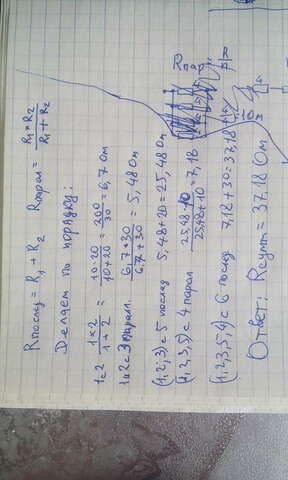 Rпослед = R₁ + R₂ Rпарал = R₁*R₂ / R₁+R₂
Делаем по порядку:
1 с 2 1*2 / 1+2 = 10·20 / 10+20 = 200 / 30 = 6,7 Ом
1 и 2 с 3 парал. 6,7*30 / 6,7+30 = 5,48 Ом
(1,2,3) с 5 послед 5,48+20=25,48 Ом
(1,2,3,5) с 4 парал 25,48·10 / 25,48+10 = 7,18
(1,2,3,5,4) с 6 послед 7,18+30=37,18
Ответ: Rсумм = 37,18 Ом